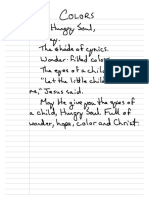 COLORS
Hungry Soul,
The shade of cynics.
Wonder-filled colors.
The eyes of a child.
"Let the little child
me," Jesus said.
May He give you the eyes of
a child, Hungry Soul. Full of
wonder, hope, color and Christ.